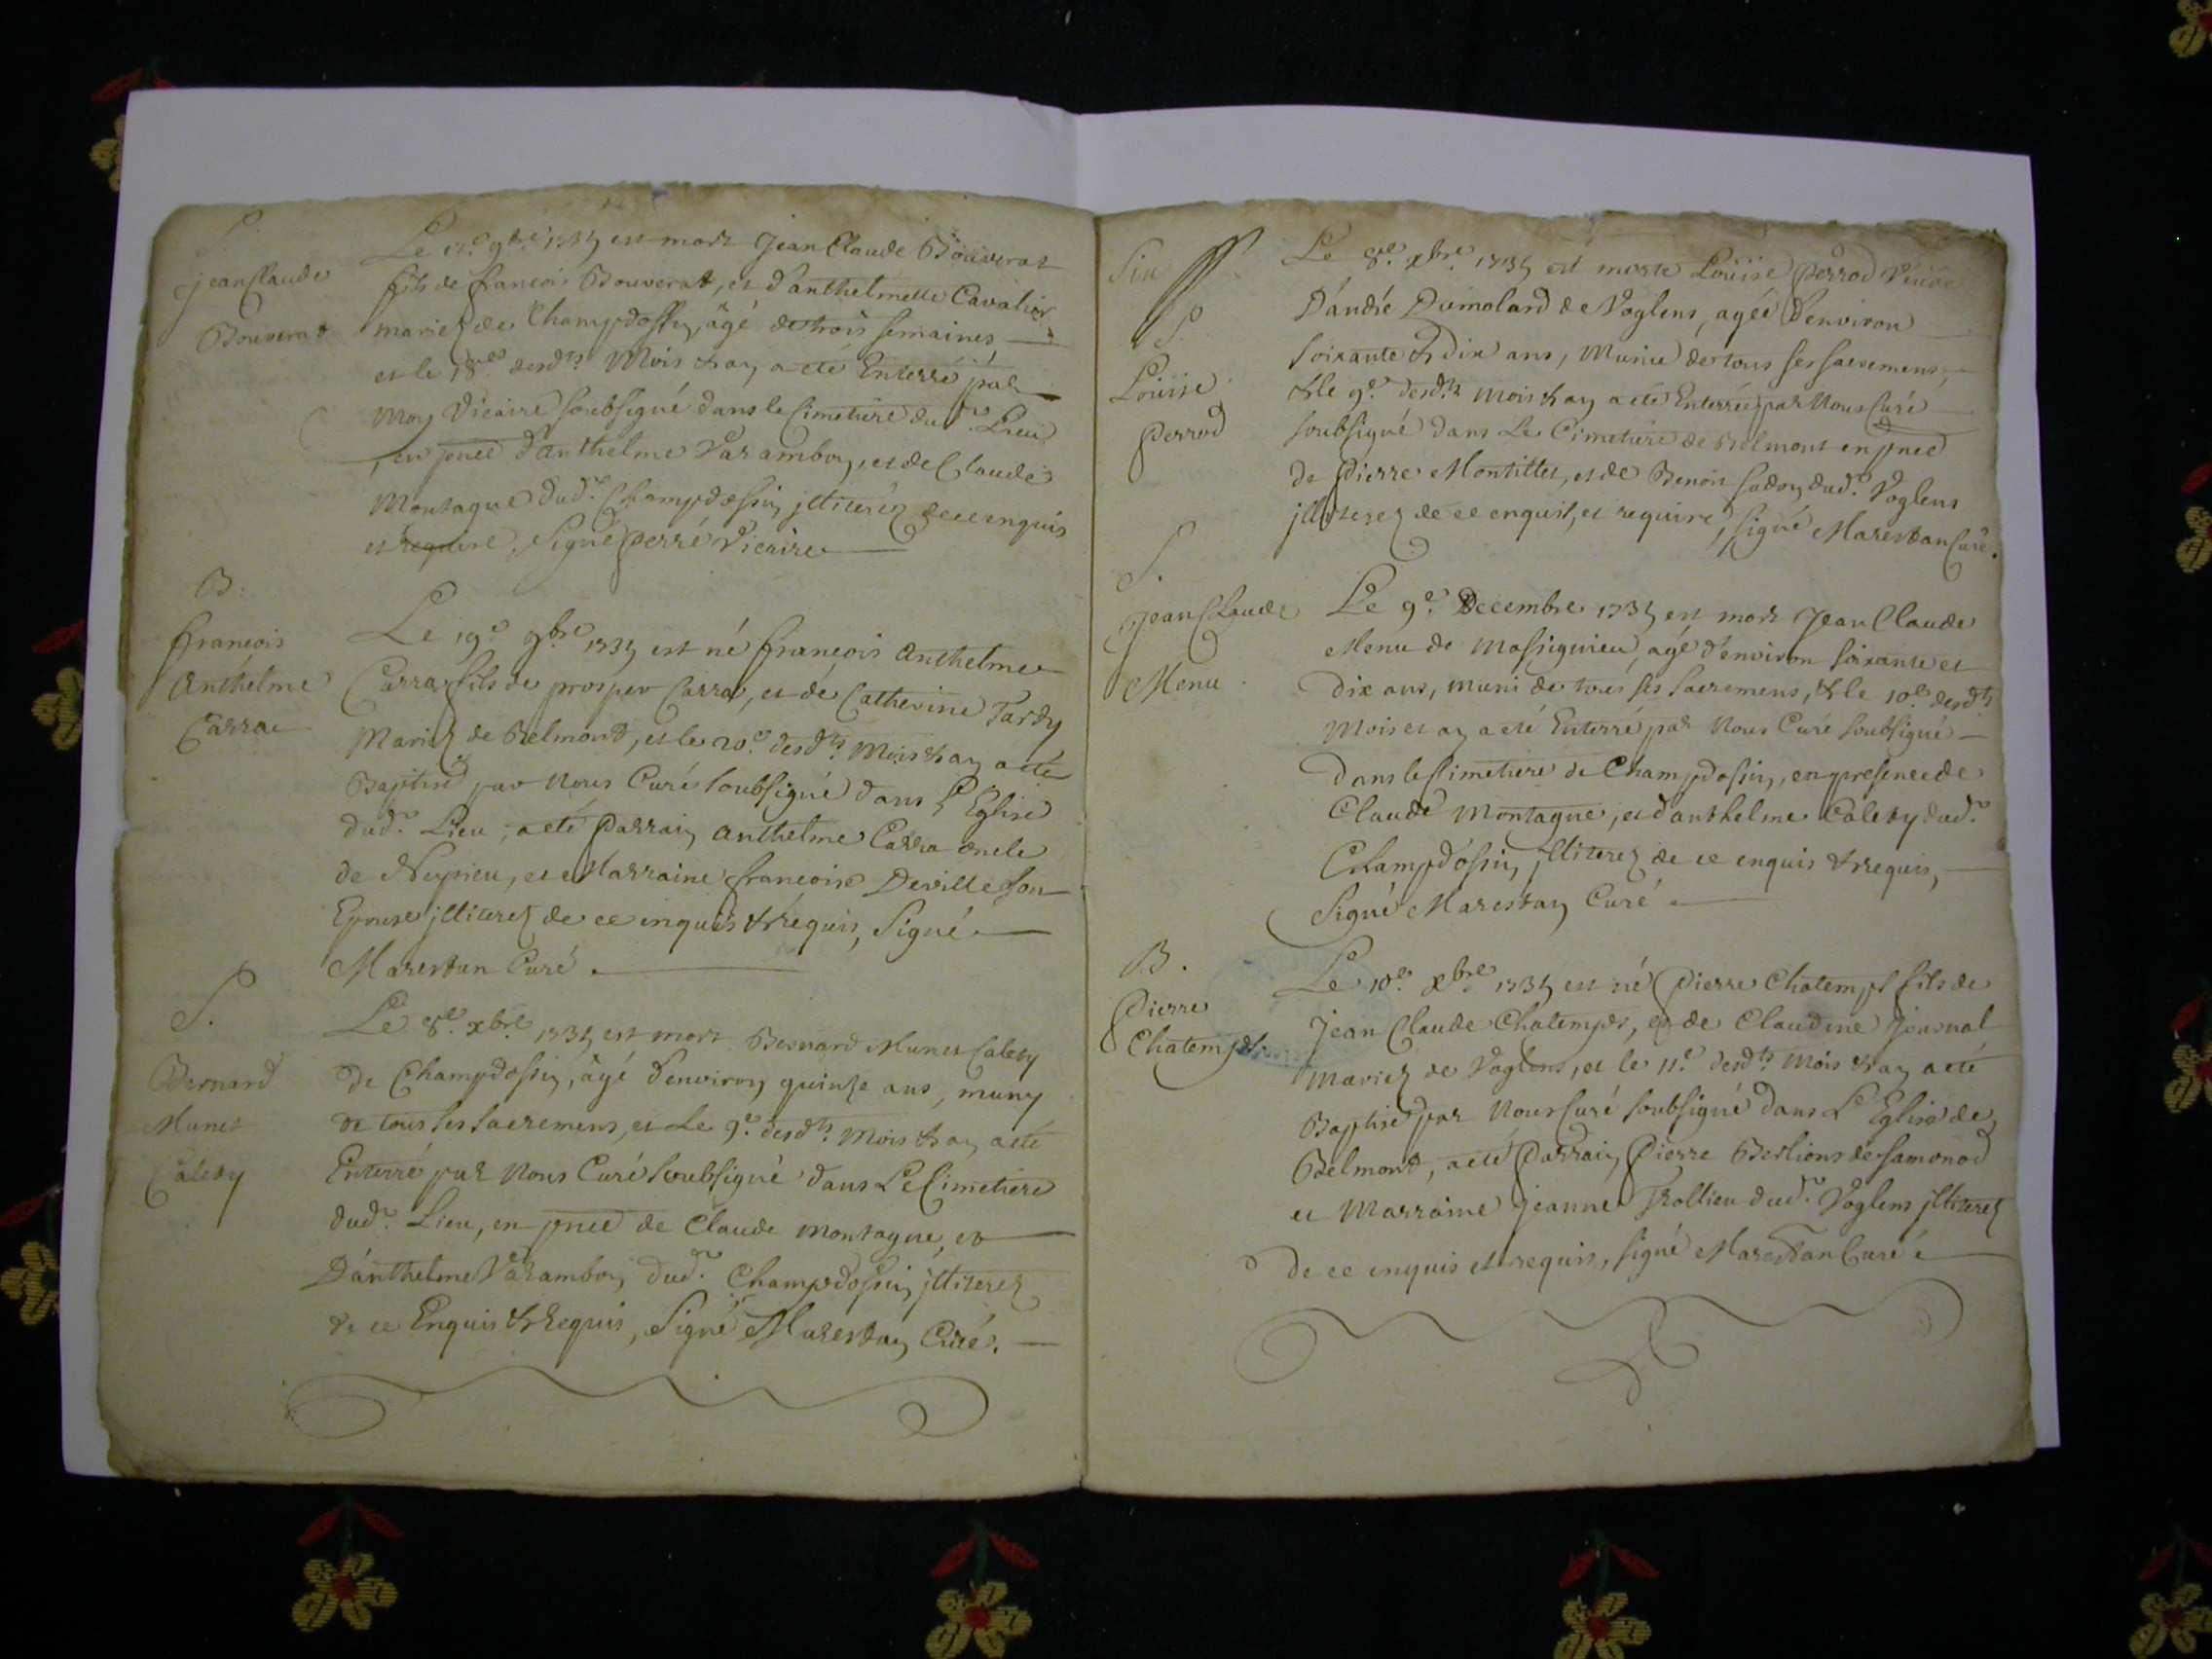 S.
Jean Claude
Bouverat
Le 17.e 9bre 1735 est mort Jean Claude Bouverat
fils de francois Bouverat, et d'anthelmette Cavalier
mariez de Champdossin, âgé de trois semaines
et le 18.e desdts Mois & an a eté Enterré par
moy Vicaire soubsigné dans le Cimetiere dud.t Lieu
, en pnce d'anthelme Varambon, et de Claude
Montagne dud.t Champdossin jlliterez de ce enquis
et requise, Signé perré Vicaire
B.
francois
Anthelme
Carra
Le 19.e 9bre 1735 est né francois Anthelme
Carra fils de prosper Carra, et de Catherine Tardy
Mariez de Belmont, et le 20.e desdts Mois & an a eté
Baptisé par Nous Curé soubsigné dans L'Eglise
dud.t Lieu, a eté Parrain Anthelme Carra oncle
de Neyrieu, et Marraine francoise Deville son
Epouse jlliterez de ce inquis & requis, Signé
Marestan Curé.
S.
Bernard
Munet
Calety
Le 8.e xbre 1735 est mort Bernard Munet Calety
de Champdossin, âgé d'environ quinze ans, muny
de tous ses sacremens, et Le 9.e desdts Mois & an a eté
Enterré par Nous Curé soubsigné dans Le Cimetiere
dud.t Lieu, en pnce de Claude Montagne, et
D'anthelme Varambon dud.t Champdossin jlliterez
de ce Enquis & Requis, Signé Marestan Curé.
S.
Louise
perrod
Le 8.e xbre 1735 est morte Louise perrod Veuve
D'andré Dumolard de Voglens, agée d'environ
soixante & dix ans, Munie de tous ses sacremens,
& le 9.e desdts mois & an a eté Enterrée par Nous Curé
soubsigné dans Le Cimetiere de Belmont en pnce
de Pierre Montillet, et de Benoit dud.t Voglens
jlliterez de ce enquis, et require, signé Marestan Curé.
S.
Jean Claude
Menu
Le 9.e Decembre 1735 est mort Jean Claude
Menu de Massignieu, agé d'environ soixante et
dix ans, muni de tous ses sacremens, & le 10.e desdts
Mois et an a eté Enterré par Nous Curé soubsigné
dans le Cimetiere de Champdossin, en presence de
Claude Montagne, et d'anthelme Calety dud.t
Champdossin jlliterez de ce enquis & requis,
Signé Marestan Curé
B.
Pierre
Chatempt
Le 10.e xbre 1735 est né Pierre Chatempt fils de
Jean Claude Chatempt, et de Claudine
Mariez de Voglens, et le 11.e desdts Mois & an a eté
Baptisé par Nous Curé soubsigné dans L'Eglise de
Belmont, a eté Parrain Pierre Berlion de Samonod
et Marraine Jeanne Trollieu dud.t Voglens jlliterez
de ce enquis et requis, signé Marestan Curé